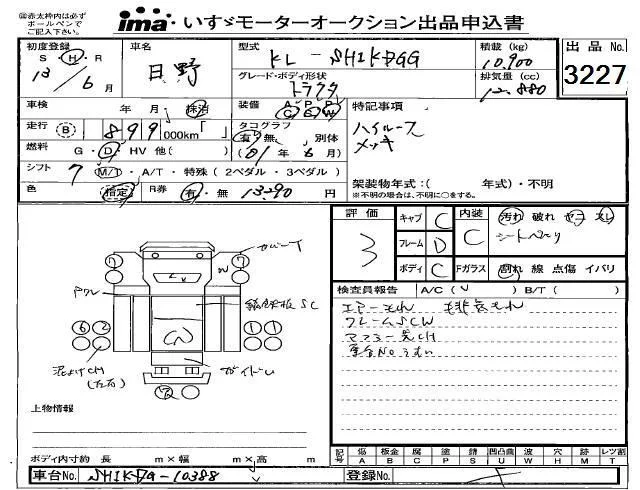 ㊟赤太枠内は必ず
ボールペンで
ご記入下さい。
ima・いすゞモーターオークション出品申込書
初度登録
S・H・R
13年 6月
車名
日野
型式
KL-SH1KDGG
グレード・ボディ形状
トラクタ
積載 (kg)
10,900
排気量 (cc)
12,880
出品No.
3227
車検 年 月 抹消
装備 A P P
C S W
走行 B 899,000km
タコグラフ
有・無 別体
(01年6月)
燃料 G・D・HV 他( )
シフト 7 M/T・A/T・特殊(2ペダル・3ペダル)
色 指定
R券 有・無 13290円
特記事項
ハイルーフ
メッキ
架装物年式:( 年式)・不明
※不明の場合は、不明に○をする。
評価
3
キャブ C
フレーム D
ボディ C
内装 C
汚れ 破れ
Fガラス 割れ 線 点傷 イバリ
検査員報告 A/C( ) B/T( )
エアーもれ 排気もれ
フレームSCW
車台Noうすい
カバーT
W
SC
ガイドU
泥よけCM
(左右)
7 7
6 2 1 1
上物情報
ボディ内寸約 長 m×幅 m×高 m
記号 傷 A 板金 B 腐 C 塗 P 錆 S 凹凸曲 U 波 W 穴 H 跡 M レツ割 T
車台No. SH1KDG-10388
登録No.